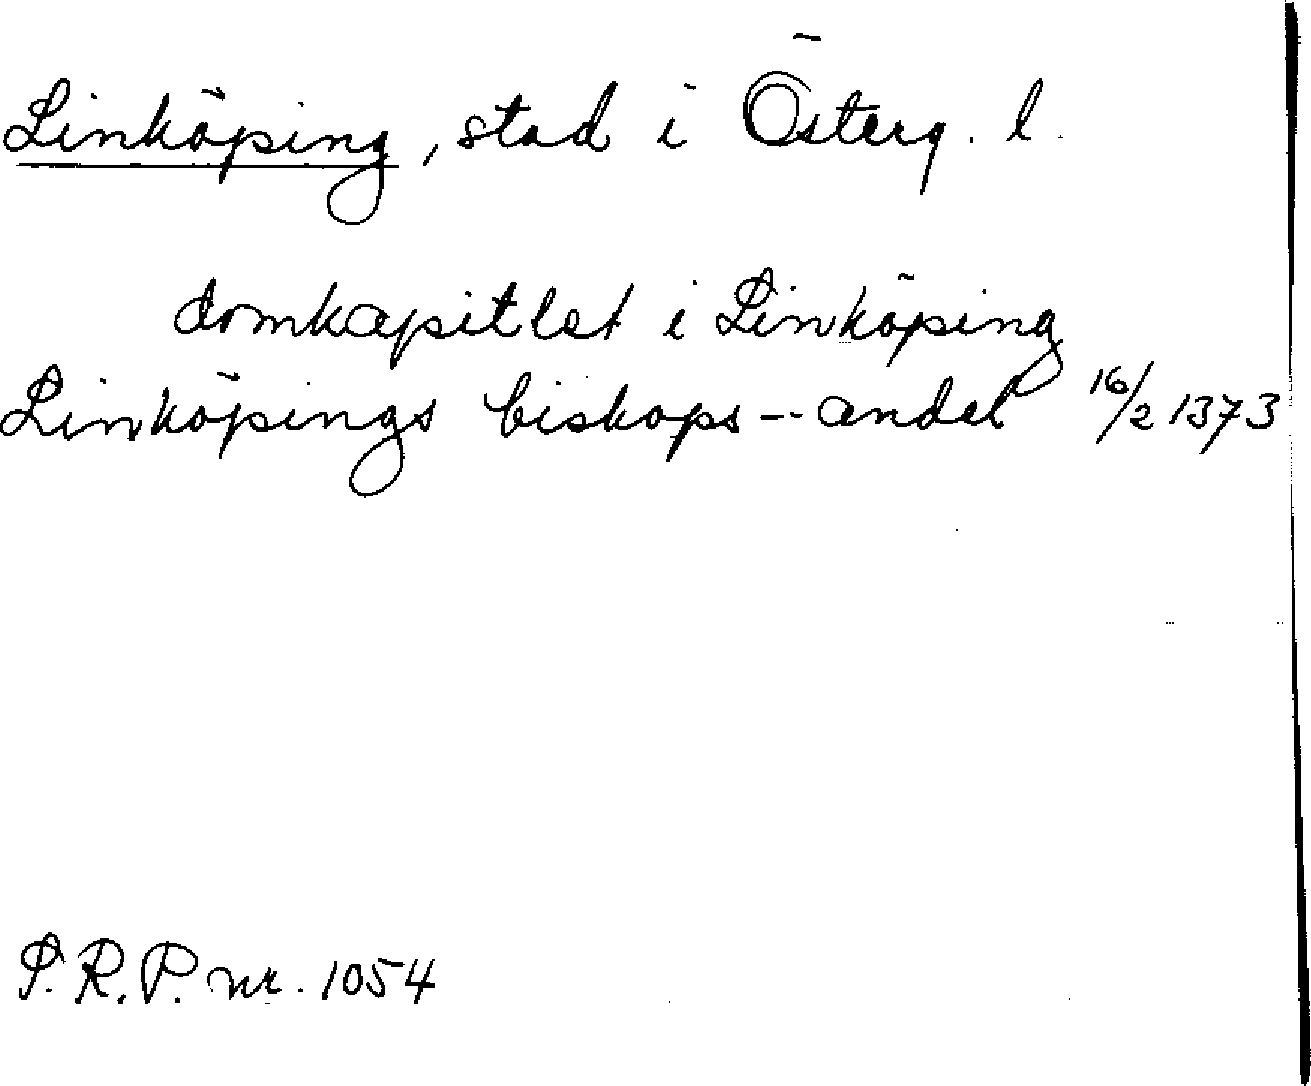 Linköping, stad i Österg. l.
domkapitlet i Linköping
Linköpings biskops-andel 16/2 1373
S.R.P. nr. 1054